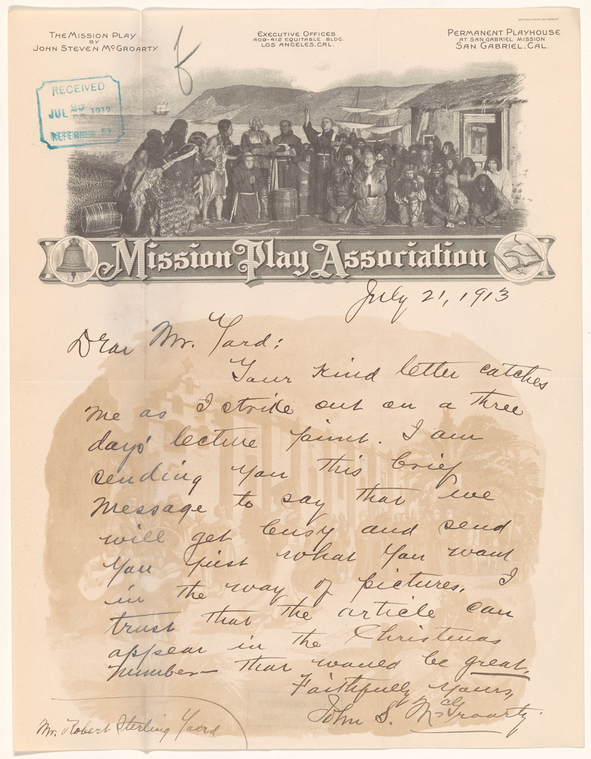 The Mission Play
by
John Steven McGroarty
Executive Offices
409-412 Equitable Bldg.
Los Angeles, Cal.
Permanent Playhouse
at San Gabriel Mission
San Gabriel, Cal.
RECEIVED
JUL
REFERRED
Mission Play Association
July 21, 1913
Dear Mr. Yard:
Your kind letter catches
me as I stride out on a three
days' lecture jaunt. I am
sending you this brief
message to say that we
will get busy and send
you just what you want
in the way of pictures. I
trust that the article can
appear in the Christmas
number – that would be great.
Faithfully Yours,
John S. McGroarty.
Mr. Robert Sterling Yard